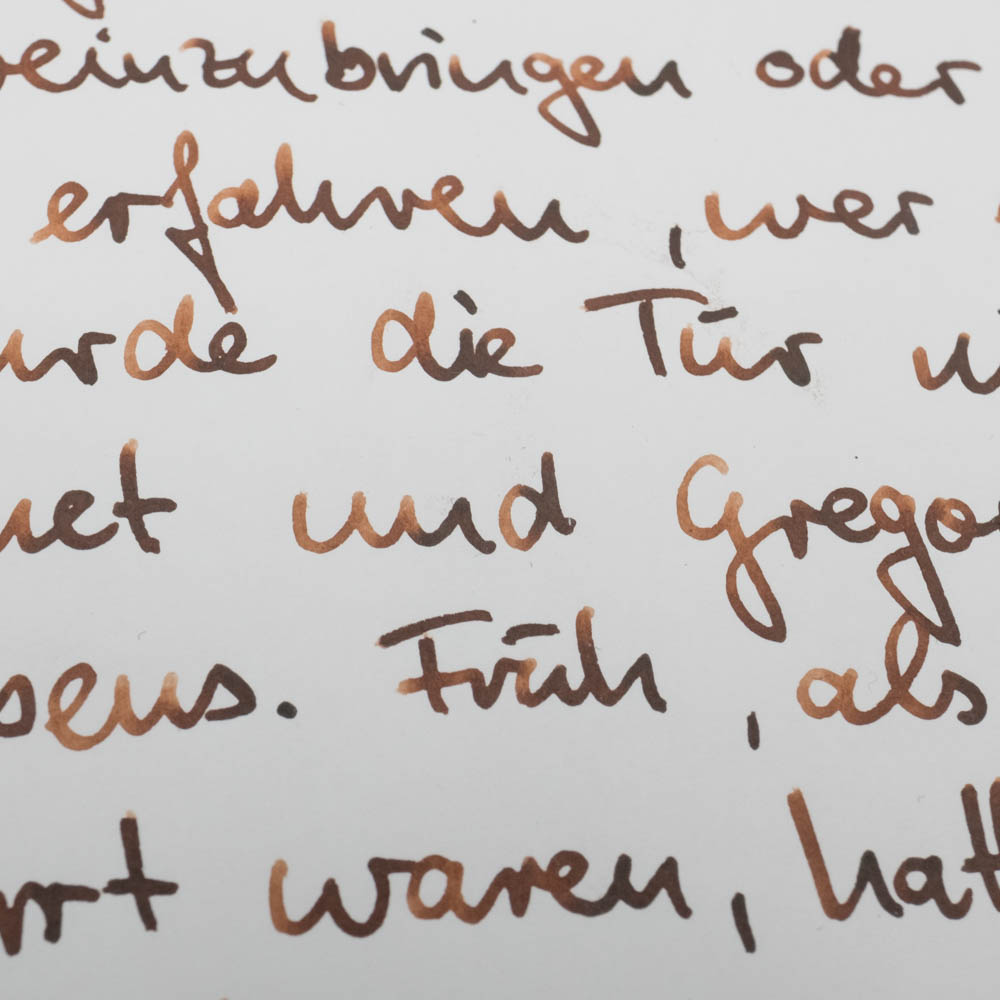 einzubringen oder
erfahren, wer
urde die Tür
net und Gregor
sens. Früh, als
rrt waren, hatt